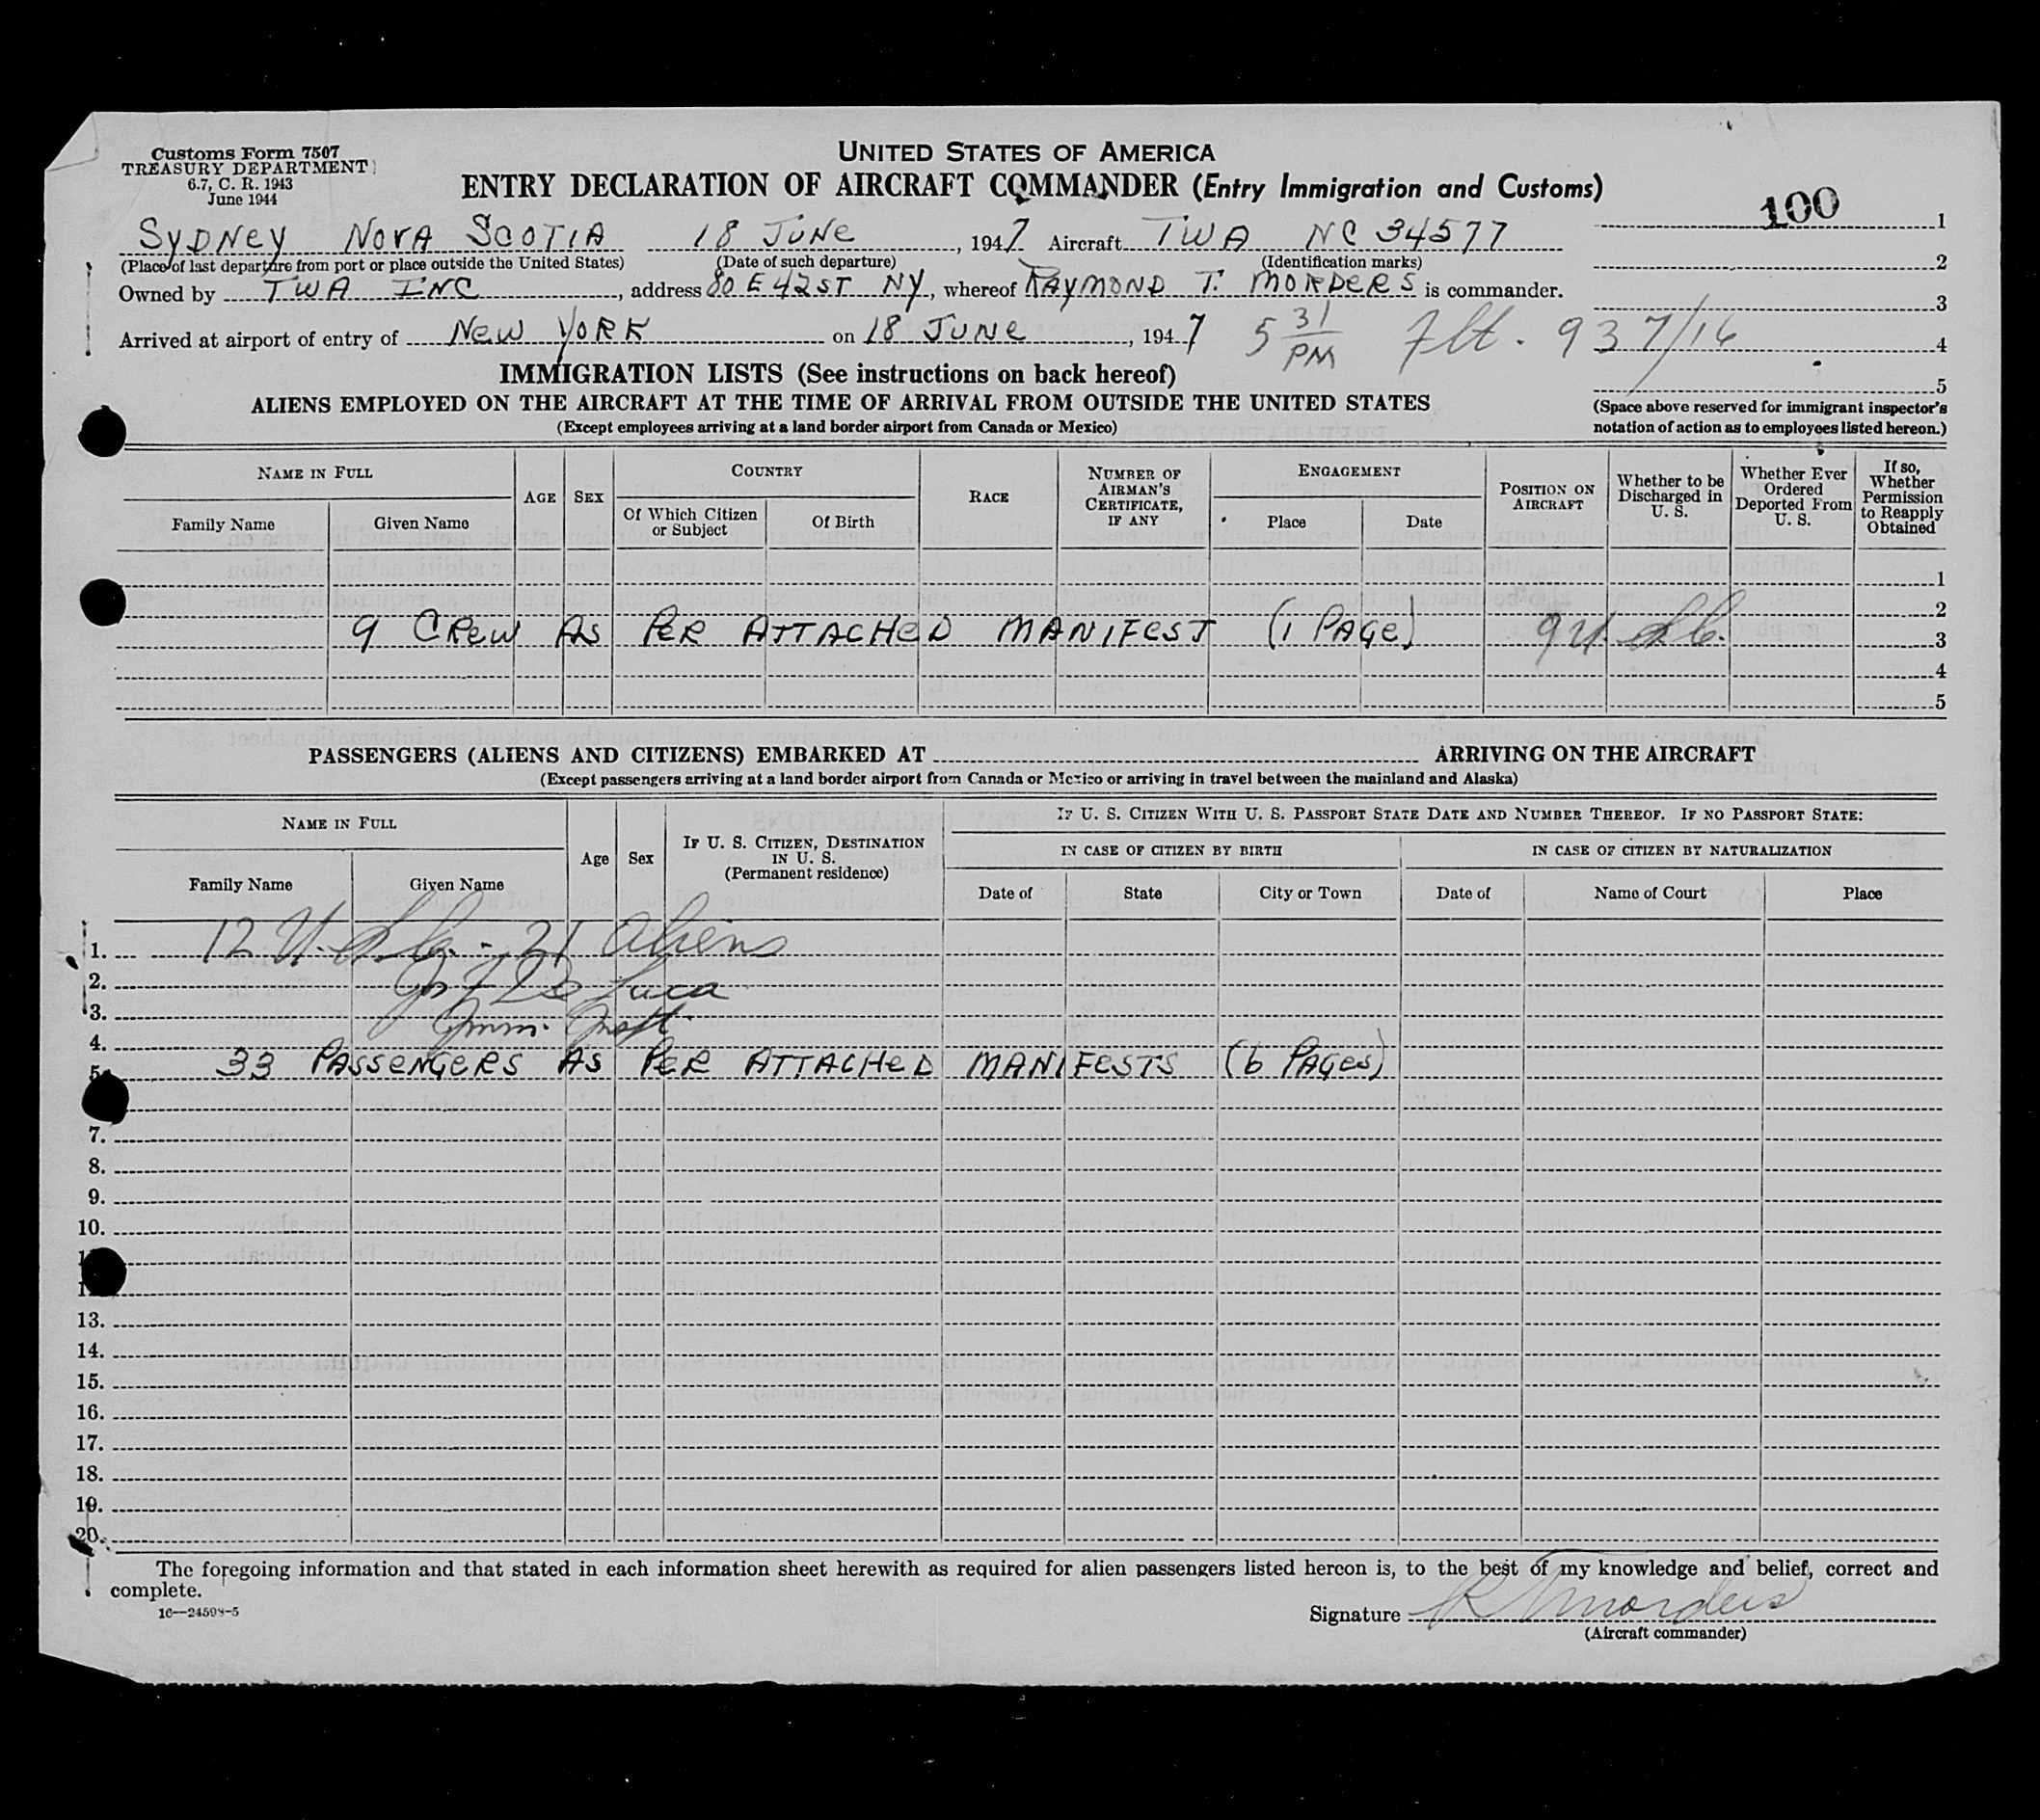 Customs Form 7507
TREASURY DEPARTMENT
6.7, C. R. 1943
June 1944
UNITED STATES OF AMERICA
ENTRY DECLARATION OF AIRCRAFT COMMANDER (Entry Immigration and Customs)
100
1
SYDNEY NOVA SCOTIA 18 JUNE, 1947 Aircraft TWA NC 34577
(Place of last departure from port or place outside the United States) (Date of such departure) (Identification marks)
2
Owned by TWA INC, address 80 E 42 ST NY, whereof RAYMOND T. MORDERS is commander.
3
Arrived at airport of entry of NEW YORK on 18 JUNE, 1947 5 31 PM Flt. 937/16
4
5
IMMIGRATION LISTS (See instructions on back hereof)
ALIENS EMPLOYED ON THE AIRCRAFT AT THE TIME OF ARRIVAL FROM OUTSIDE THE UNITED STATES
(Except employees arriving at a land border airport from Canada or Mexico)
(Space above reserved for immigrant inspector's
notation of action as to employees listed hereon.)
NAME IN FULL
Family Name
Given Name
AGE
SEX
COUNTRY
Of Which Citizen
or Subject
Of Birth
RACE
NUMBER OF
AIRMAN'S
CERTIFICATE,
IF ANY
ENGAGEMENT
Place
Date
POSITION ON
AIRCRAFT
Whether to be
Discharged in
U. S.
Whether Ever
Ordered
Deported From
U. S.
If so,
Whether
Permission
to Reapply
Obtained
1
2
9 CREW AS PER ATTACHED MANIFEST (1 PAGE) 9 U.S.C.
3
4
5
PASSENGERS (ALIENS AND CITIZENS) EMBARKED AT ARRIVING ON THE AIRCRAFT
(Except passengers arriving at a land border airport from Canada or Mexico or arriving in travel between the mainland and Alaska)
NAME IN FULL
Family Name
Given Name
Age
Sex
IF U. S. CITIZEN, DESTINATION
IN U. S.
(Permanent residence)
IF U. S. CITIZEN WITH U. S. PASSPORT STATE DATE AND NUMBER THEREOF. IF NO PASSPORT STATE:
IN CASE OF CITIZEN BY BIRTH
Date of
State
City or Town
IN CASE OF CITIZEN BY NATURALIZATION
Date of
Name of Court
Place
1. 12 U.S.C. - 21 Aliens
2. De Luca
3. Imm. Insp.
4.
5. 33 PASSENGERS AS PER ATTACHED MANIFESTS (6 PAGES)
7.
8.
9.
10.
13.
14.
15.
16.
17.
18.
19.
20.
The foregoing information and that stated in each information sheet herewith as required for alien passengers listed hereon is, to the best of my knowledge and belief, correct and
complete.
16—24598-5
Signature R T Morders
(Aircraft commander)